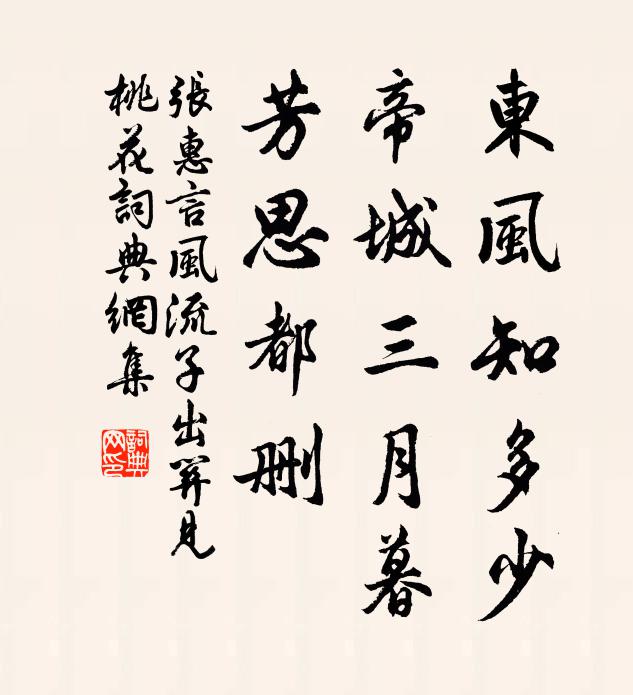 東風知多少
帝城三月暮
芳思都刪
張惠言風流子出關見
桃花詞典網集
詞典網印